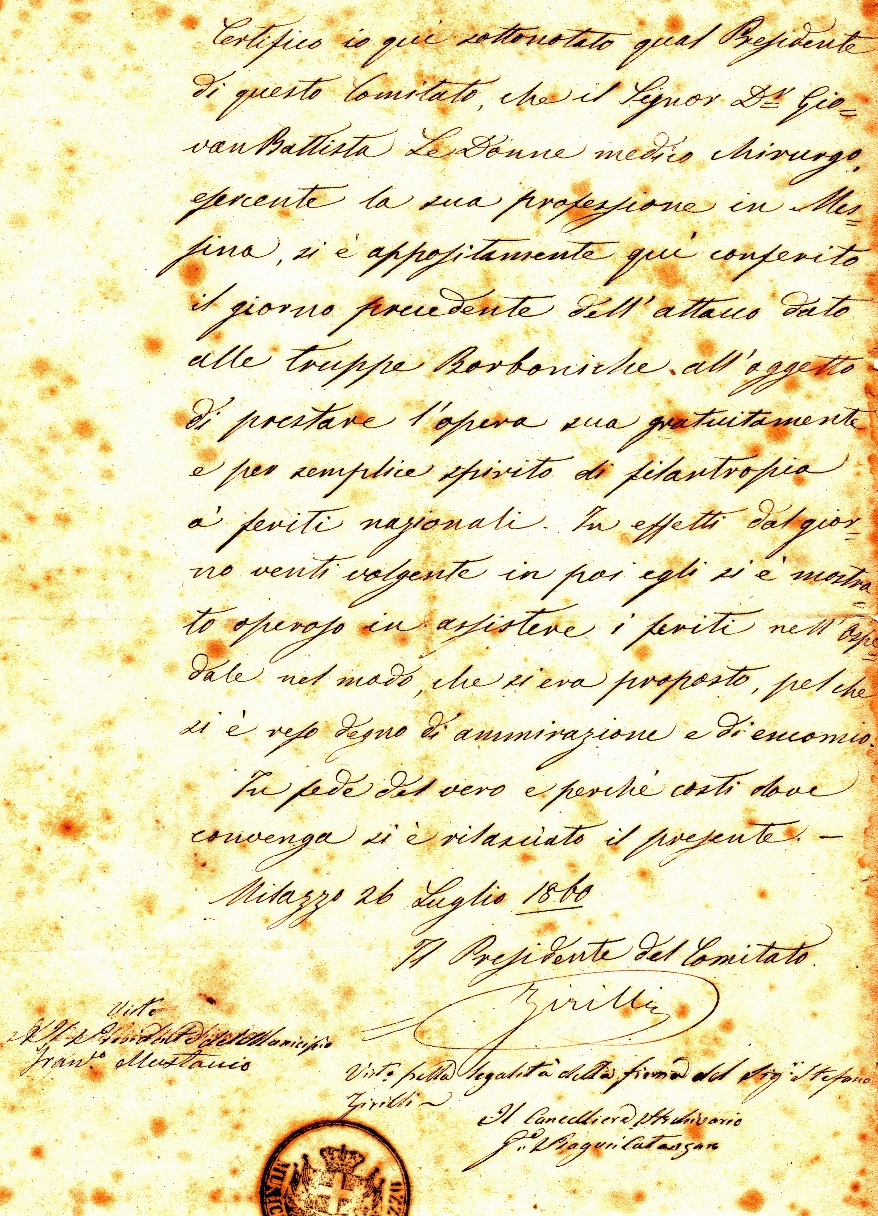 Certifico io quì sottonotato qual Presidente
di questo Comitato, che il Signor Dr. Gio=
van Battista Le Donne medico chirurgo,
esercente la sua professione in Mes=
sina, si è appositamente quì conferito
il giorno precedente dell'attacco dato
alle truppe Borboniche all'oggetto
di prestare l'opera sua gratuitamente
e per semplice spirito di filantropia
a' feriti nazionali. In effetti dal gior=
no venti volgente in poi egli si è mostra=
to operoso in assistere i feriti nell'Ospe=
dale nel modo, che si era proposto, pel che
si è reso degno di ammirazione e di encomio.
In fede del vero e perchè costi dove
convenga si è rilasciato il presente. —
Milazzo 26 Luglio 1860
Il Presidente del Comitato
Zirilli
Visto
Il Presidente del Municipio
Fran.co Mustaccio
Visto pella legalità della firma del Sig.r Stefano
Zirilli
Il Cancelliere Archivario
MUNIC
ZZO